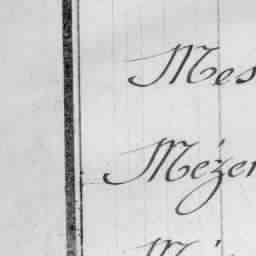 Mes
Mézer